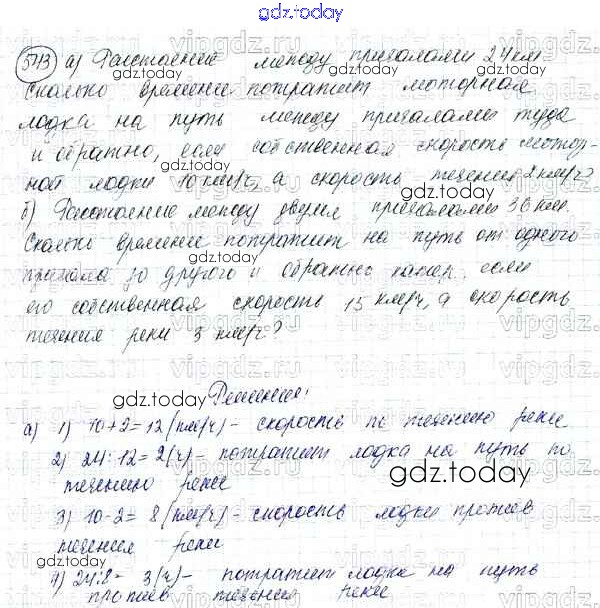 gdz.today
543 а) Расстояние между причалами 24 км
Сколько времени потратит моторная
лодка на путь между причалами туда
и обратно, если собственная скорость мотор-
ной лодки 10 км/ч, а скорость течения 2 км/ч?
б) Расстояние между двумя причалами 36 км.
Сколько времени потратит на путь от одного
причала до другого и обратно катер, если
его собственная скорость 15 км/ч, а скорость
течения реки 3 км/ч?
gdz.today
Решения:
а) 1) 10+2=12 (км/ч) - скорость по течению реки
2) 24:12=2(ч) - потратит лодка на путь по
течению реки
gdz.today
3) 10-2= 8 (км/ч) - скорость лодки против
течения реки
4) 24:8= 3(ч) - потратит лодка на путь
против течения реки